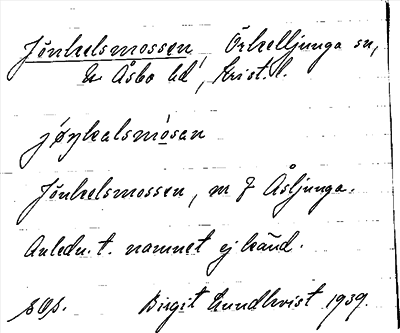 Jönkelsmossen Örkelljunga sn,
N. Åsbo hd, Krist. l.
jøŋkalsmósan
Jönkelsmossen, m f Åsljunga.
Anledn. t. namnet ej känd.
Birgit Lundkvist 1939.